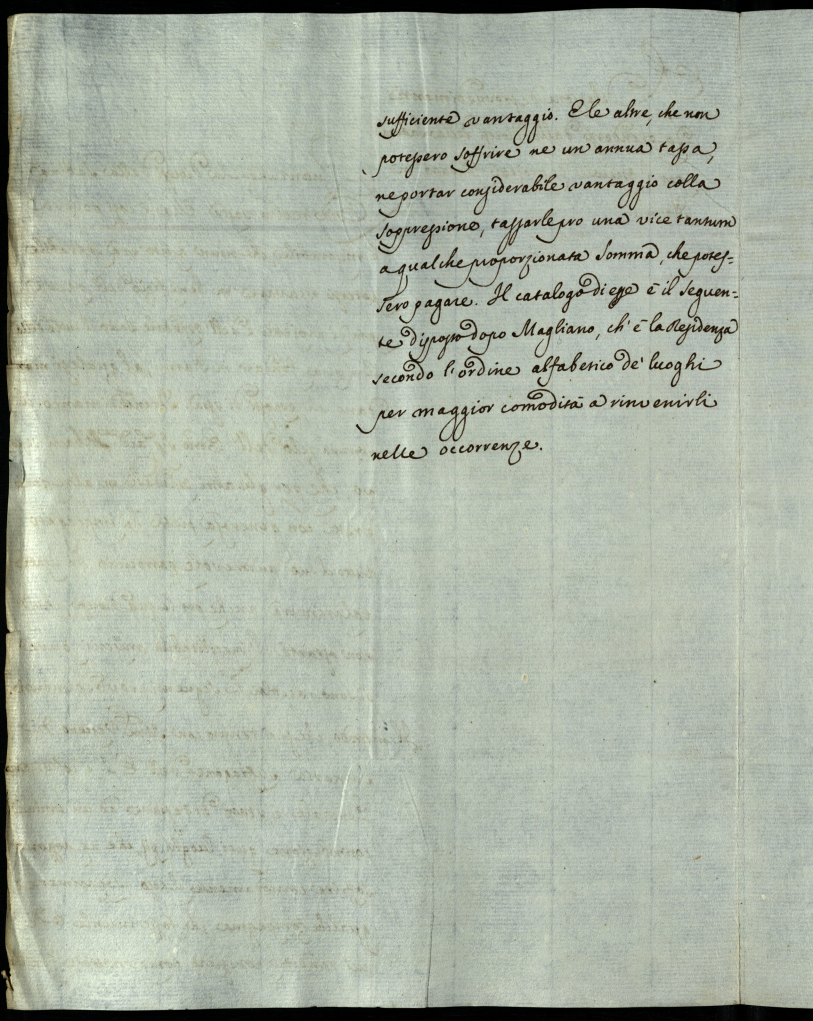 sufficiente vantaggio. E le altre, che non
potessero soffrire ne un annua tassa,
ne portar considerabile vantaggio colla
soppressione, tassarle pro una vice tantum
a qualche proporzionata somma, che potes=
sero pagare. Il catalogo di esse è il seguen=
te disposto dopo Magliano, ch' è la Residenza
secondo l'ordine alfabetico de' luoghi
per maggior comodità a rinvenirli
nelle occorrenze.